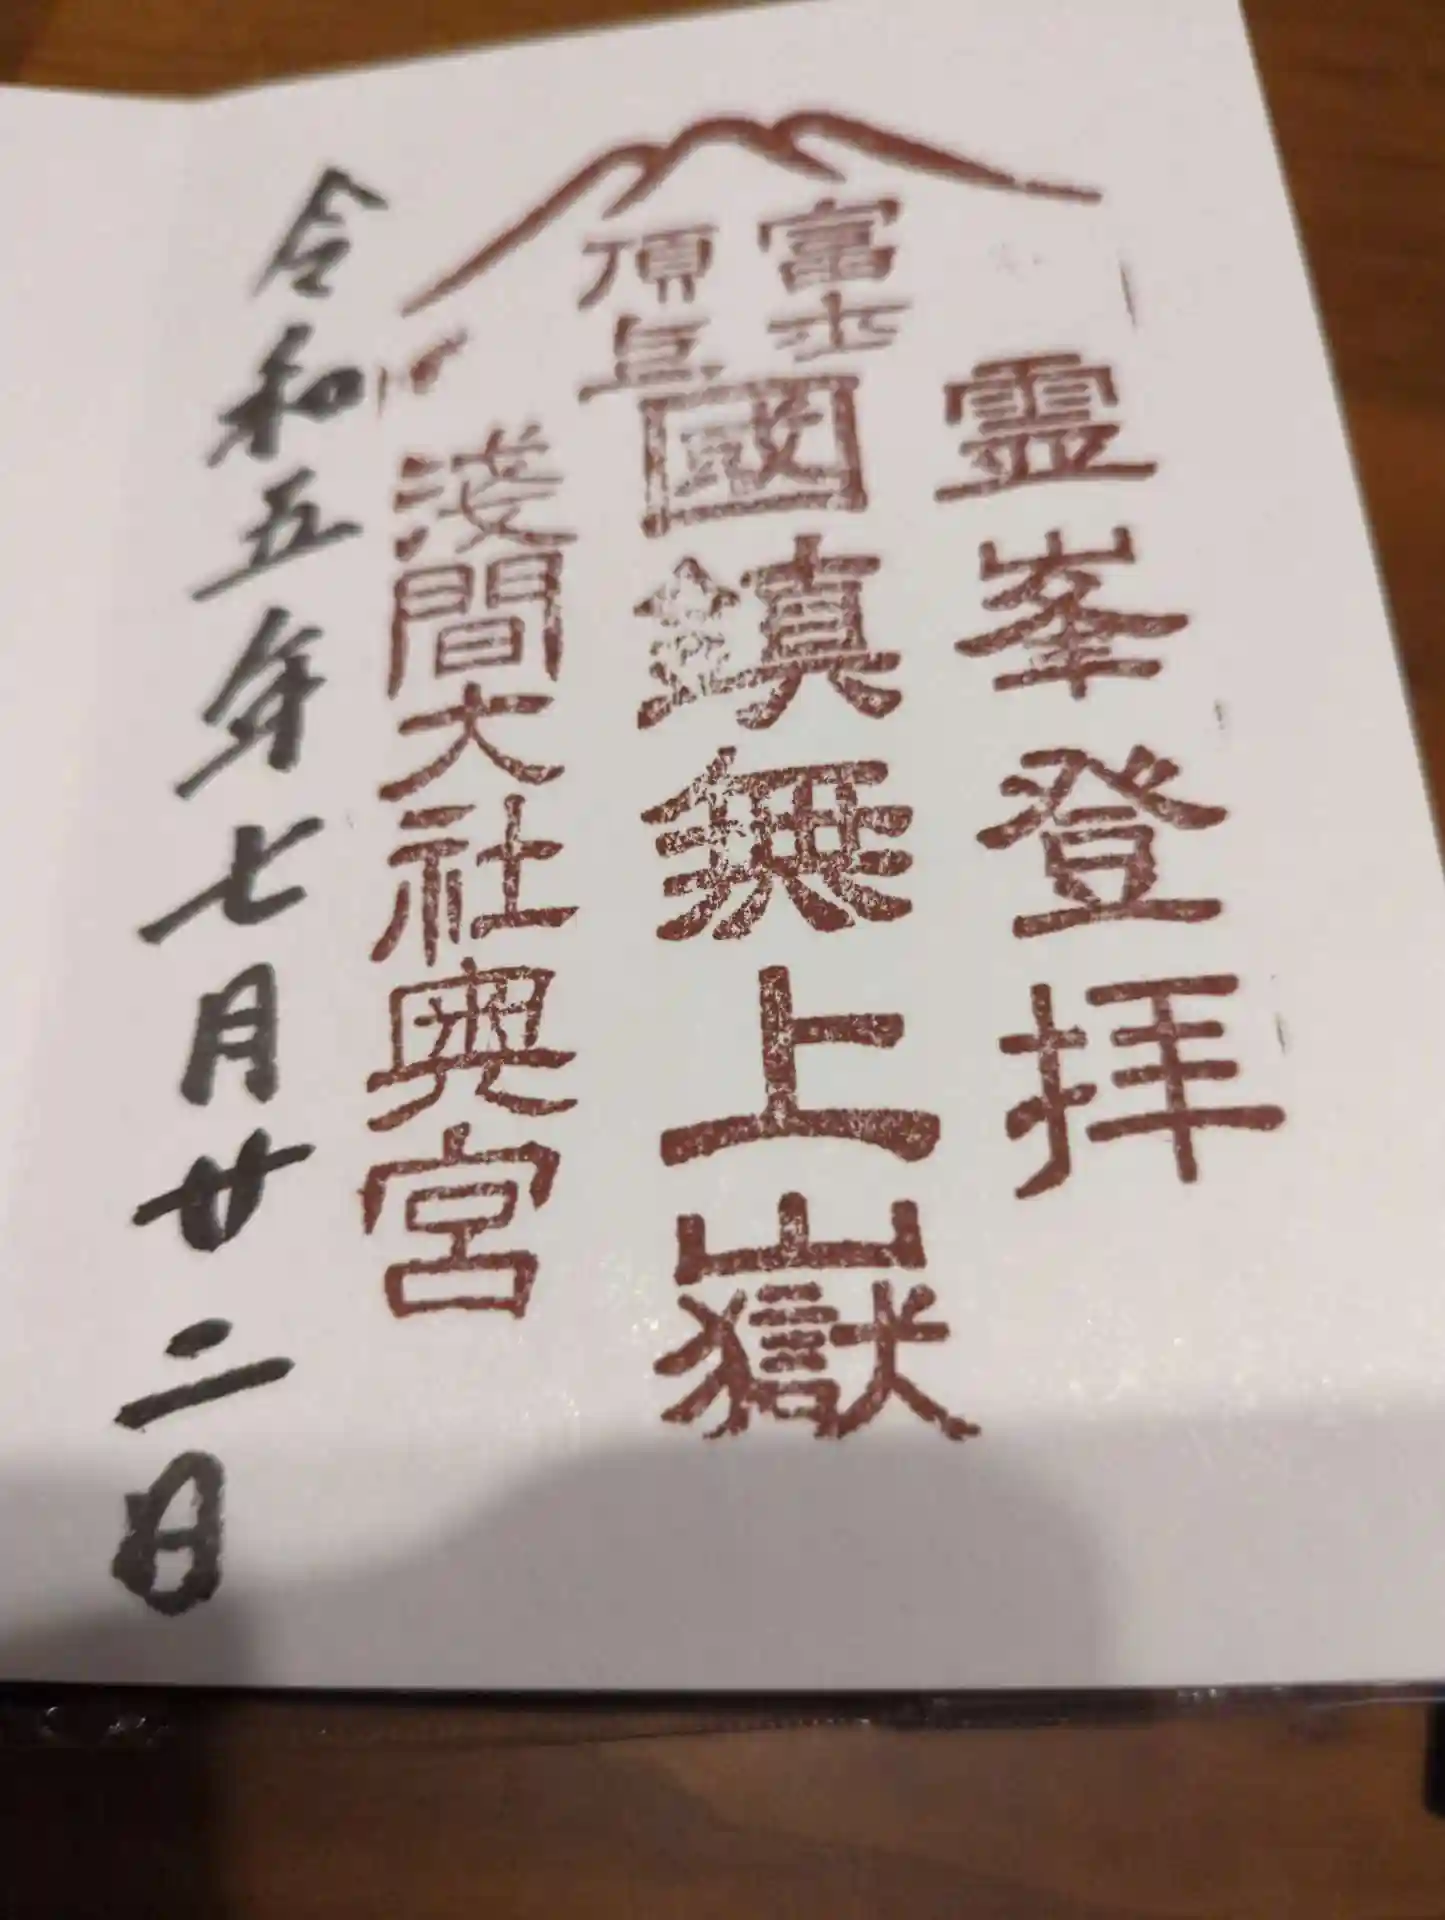 霊峯登拝
富士
頂上
國鎮無上嶽
淺間大社奥宮
令和五年七月廿二日